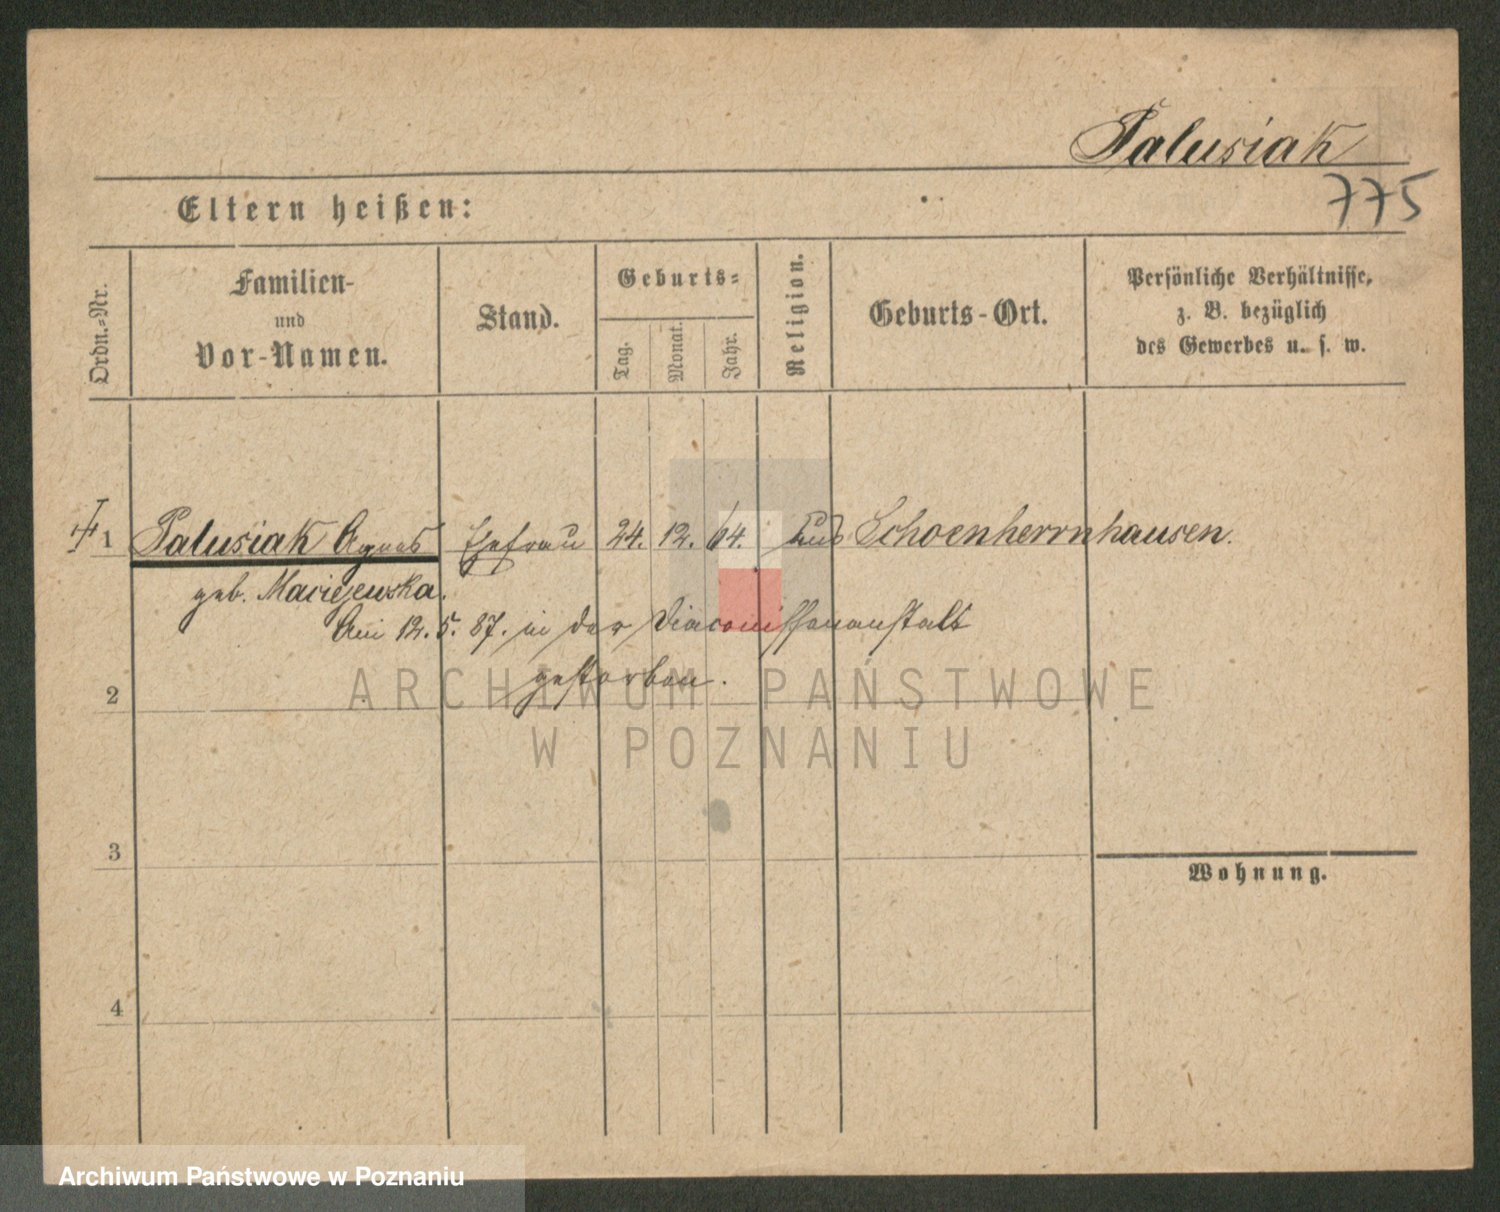 Palusiak
775
Eltern heißen:
Ordn.-Nr.
Familien-
und
Vor-Namen.
Stand.
Geburts-
Tag.
Monat.
Jahr.
Religion.
Geburts-Ort.
Persönliche Verhältnisse,
z. B. bezüglich
des Gewerbes u. s. w.
1 Palusiak Agnes Ehefrau 24. 12. 64. aus Schoenherrnhausen.
geb. Maciejewska.
Am 12. 5. 87. in der Diaconissenanstalt
gestorben.
2
3
4
Wohnung.
ARCHIWUM PAŃSTWOWE
W POZNANIU
Archiwum Państwowe w Poznaniu